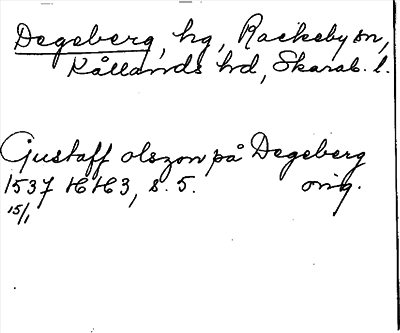 Degeberg, hg, Rackeby sn,
Kållands hd, Skarab. l.
Gustaff olszon på Degeberg
1537 HH3, s. 5. orig.
15/1